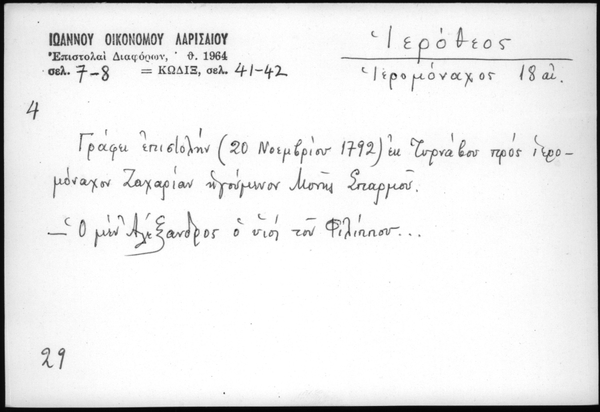 ΙΩΑΝΝΟΥ ΟΙΚΟΝΟΜΟΥ ΛΑΡΙΣΑΙΟΥ
Ἐπιστολαὶ Διαφόρων, ϑ. 1964
σελ. 7-8 = ΚΩΔΙΞ, σελ. 41-42
Ἱερόθεος
Ἱερομόναχος 18 αἰ.
4
Γράφει ἐπιστολήν (20 Νοεμβρίου 1792) ἐκ Τυρνάβου πρός ἱερο-
μόναχον Ζαχαρίαν ἡγούμενον Μονῆς Σπαρμοῦ.
– Ὁ μέν Ἀλέξανδρος ὁ υἱός τοῦ Φιλίππου...
29